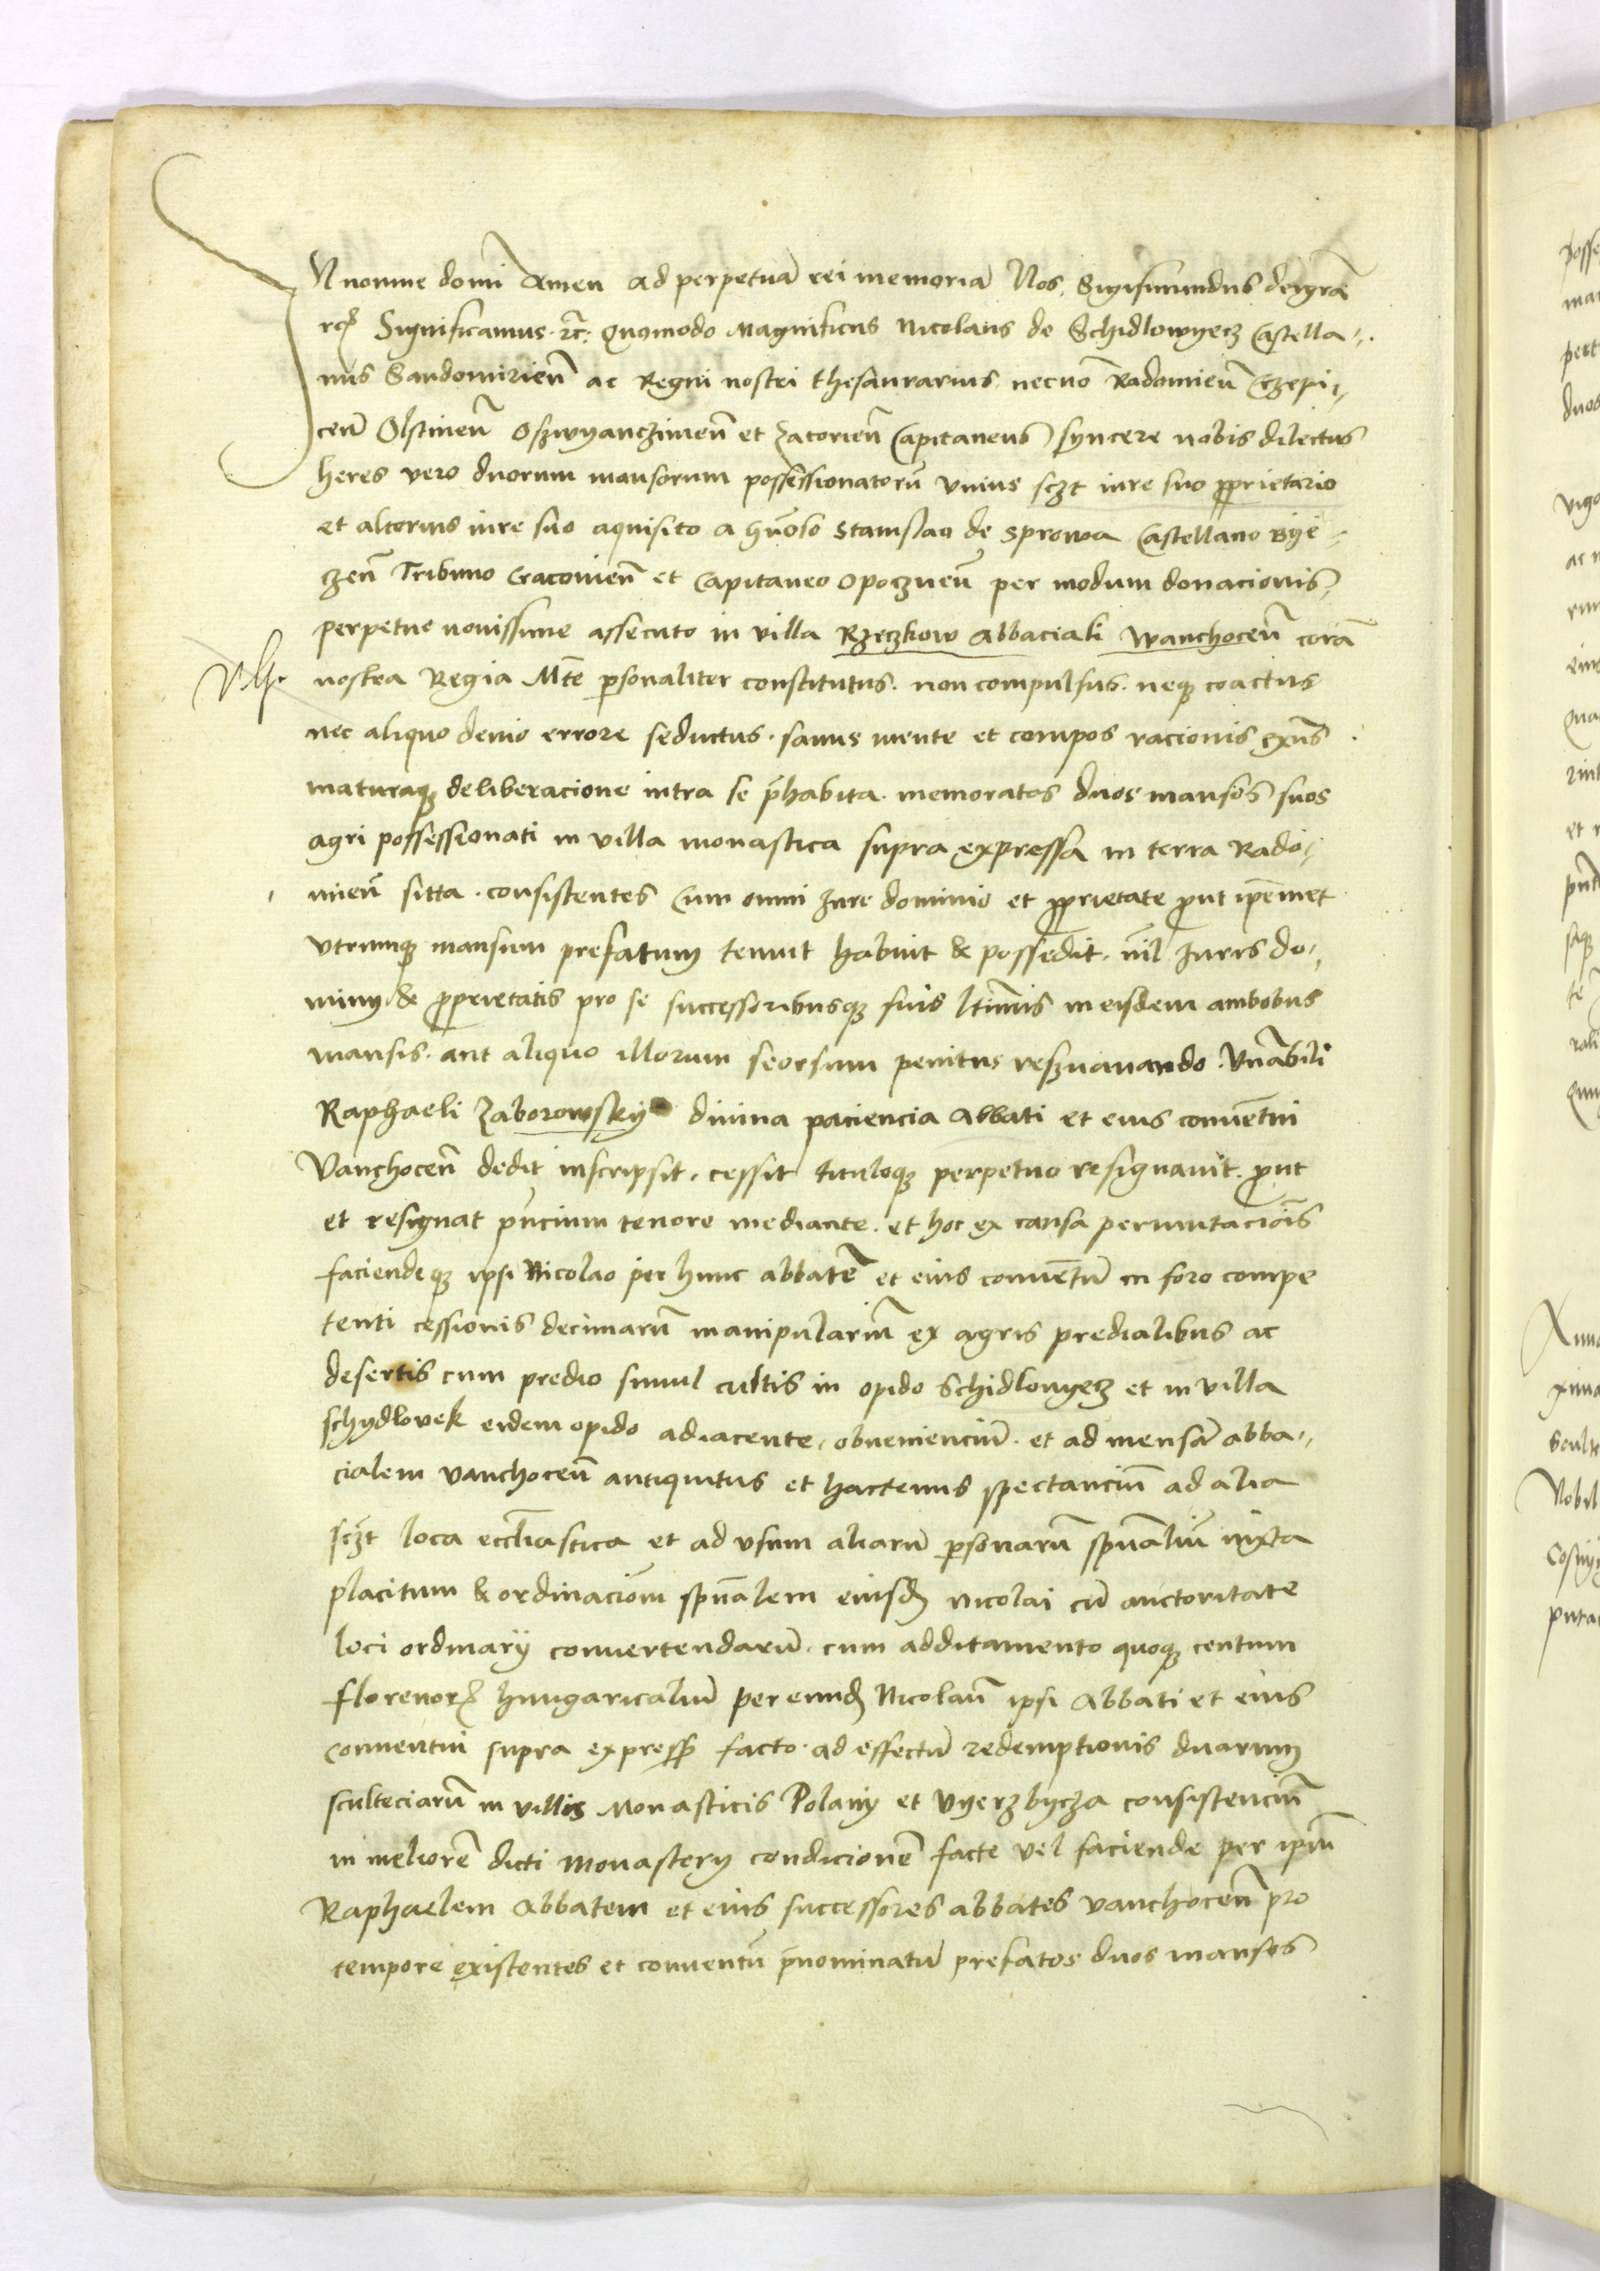 IN nomine domī Amen Ad perpetuā rei memoriā Nos Sigismundus deigrā
rex Significamus rc̄ Quomodo Magnificus Nicolaus de Schidlowyecz Castella-
nus Sandomirieñ ac Regni nostri thesaurarius necnō Radomieñ Crzepi-
ceñ Olstineñ Oszwyanczimeñ et Zatorieñ Capitaneus syncere nobis dilectus
heres vero duorum mansorum possessionatorū Vnius sczt iure suo proprietario
et alterius iure suo aquisito a Gn̄oso Stanislao de Sprowa Castellano Bye-
czeñ Tribuno Cracovieñ et Capitaneo Opoczneñ per modum donacionis
perpetue novissime assecuto in villa Rzeczkow Abbaciali Wanchoceñ corā
nostra Regia Mte personaliter constitutus. non compulsus. neque coactus
nec aliquo devio errore seductus. sanus mente et compos racionis exn̄s
maturaque deliberacione intra se p̄habita. memoratos duos mansos suos
agri possessionati in villa monastica supra expressa in terra Rado-
mieñ sitta. consistentes Cum omni Iure dominio et proprietate prout ip̄emet
vtrumque mansum prefatum tenuit habuit & possedit. nīl Iuris do-
miny & proprietatis pro se successoribusque suis ltīmis in eisdem ambobus
mansis. aut aliquo illorum seorsum penitus reszervando. Vn̄abili
Raphaeli Zaborowsky divina paciencia Abbati et eius conventui
Vanchoceñ dedit inscripsit. cessit tituloque perpetuo resignavit. prout
et resignat p̄ncium tenore mediante. et hoc ex causa permutaciōis
faciendeque ipsi Nicolao per hunc abbatē et eius conventū in foro compe
tenti cessionis decimarū manipulariū ex agris predialibus ac
desertis cum predio simul cultis in opido Schidlowyecz et in villa
schydlovek eidem opido adiacente. obvenienciū. et ad mensā abba-
cialem vanchoceñ antiquitus et hactenus spectanciū ad alia
sczt loca eccl̄iastica et ad vsum aliarū personarū spūaliū iuxta
placitum & ordinaciōm spūalem eiusdem Nicolai cū auctoritate
loci ordinarÿ convertendarū. cum additamento quoque centum
florenorum hungaricaliū per eundem Nicolaū ipsi Abbati et eius
conventui supra express facto. ad effectū redemptionis duarum
sculteciarū in villis Monasticis Polany et Vyerzbycza consistenciū
in meliorē dicti Monastery condicionē facte vel faciende per ip̄m
Raphaelem Abbatem et eius successores abbates vanchoceñ pro
tempore existentes et conventū p̄nominatū prefatos duos mansos